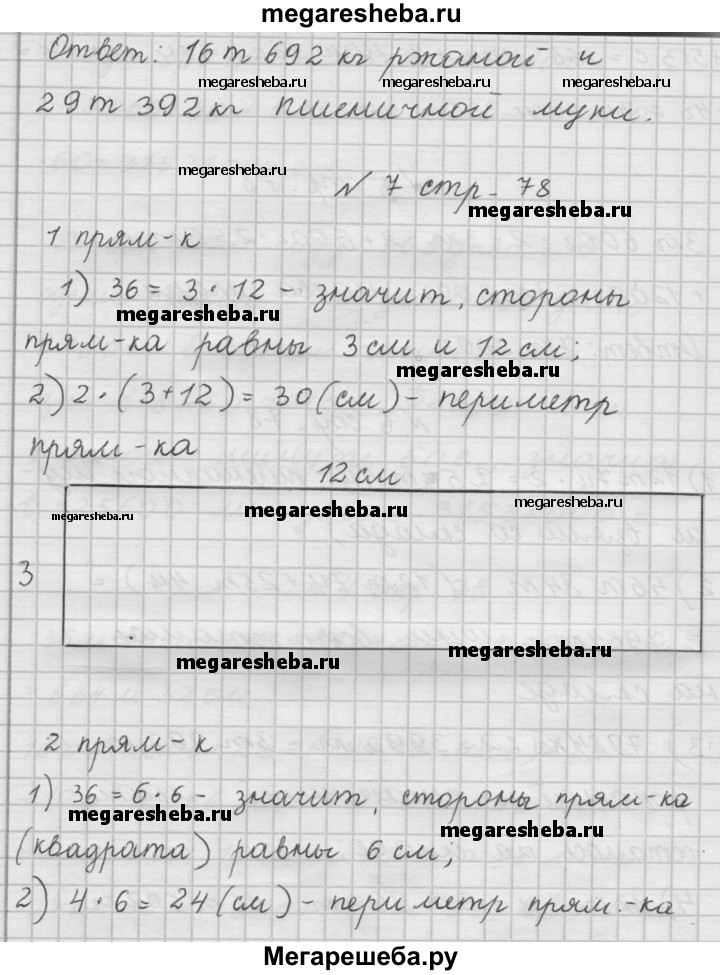 megaresheba.ru
Ответ: 16 т 692 кг ржаной и
megaresheba.ru megaresheba.ru
29 т 392 кг пшеничной муки.
megaresheba.ru
№ 7 стр. 78
megaresheba.ru
1 прям-к
1) 36 = 3 · 12 - значит, стороны
megaresheba.ru
прям-ка равны 3 см и 12 см;
megaresheba.ru
2) 2 · (3+12) = 30 (см) - периметр
прям-ка
12 см
megaresheba.ru megaresheba.ru megaresheba.ru
3
megaresheba.ru megaresheba.ru
2 прям-к
1) 36 = 6 · 6 - значит, стороны прям-ка
megaresheba.ru megaresheba.ru
(квадрата) равны 6 см;
2) 4 · 6 = 24 (см) - периметр прям.-ка
Мегарешеба.ру